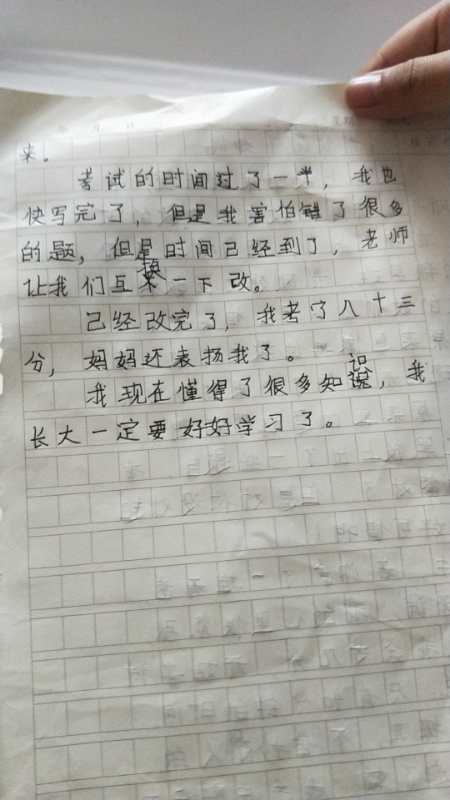 来。
考试的时间过了一半，我也
快写完了，但是我害怕错了很多
的题，但是时间已经到了，老师
让我们互换一下改。
已经改完了，我考了八十三
分，妈妈还表扬我了。
我现在懂得了很多知识，我
长大一定要好好学习了。